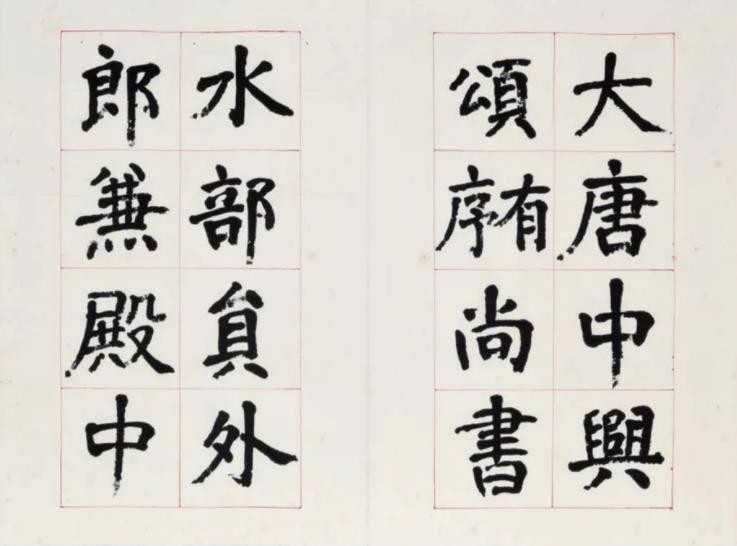 大唐中興
頌有序尚書
水部貟外
郎兼殿中